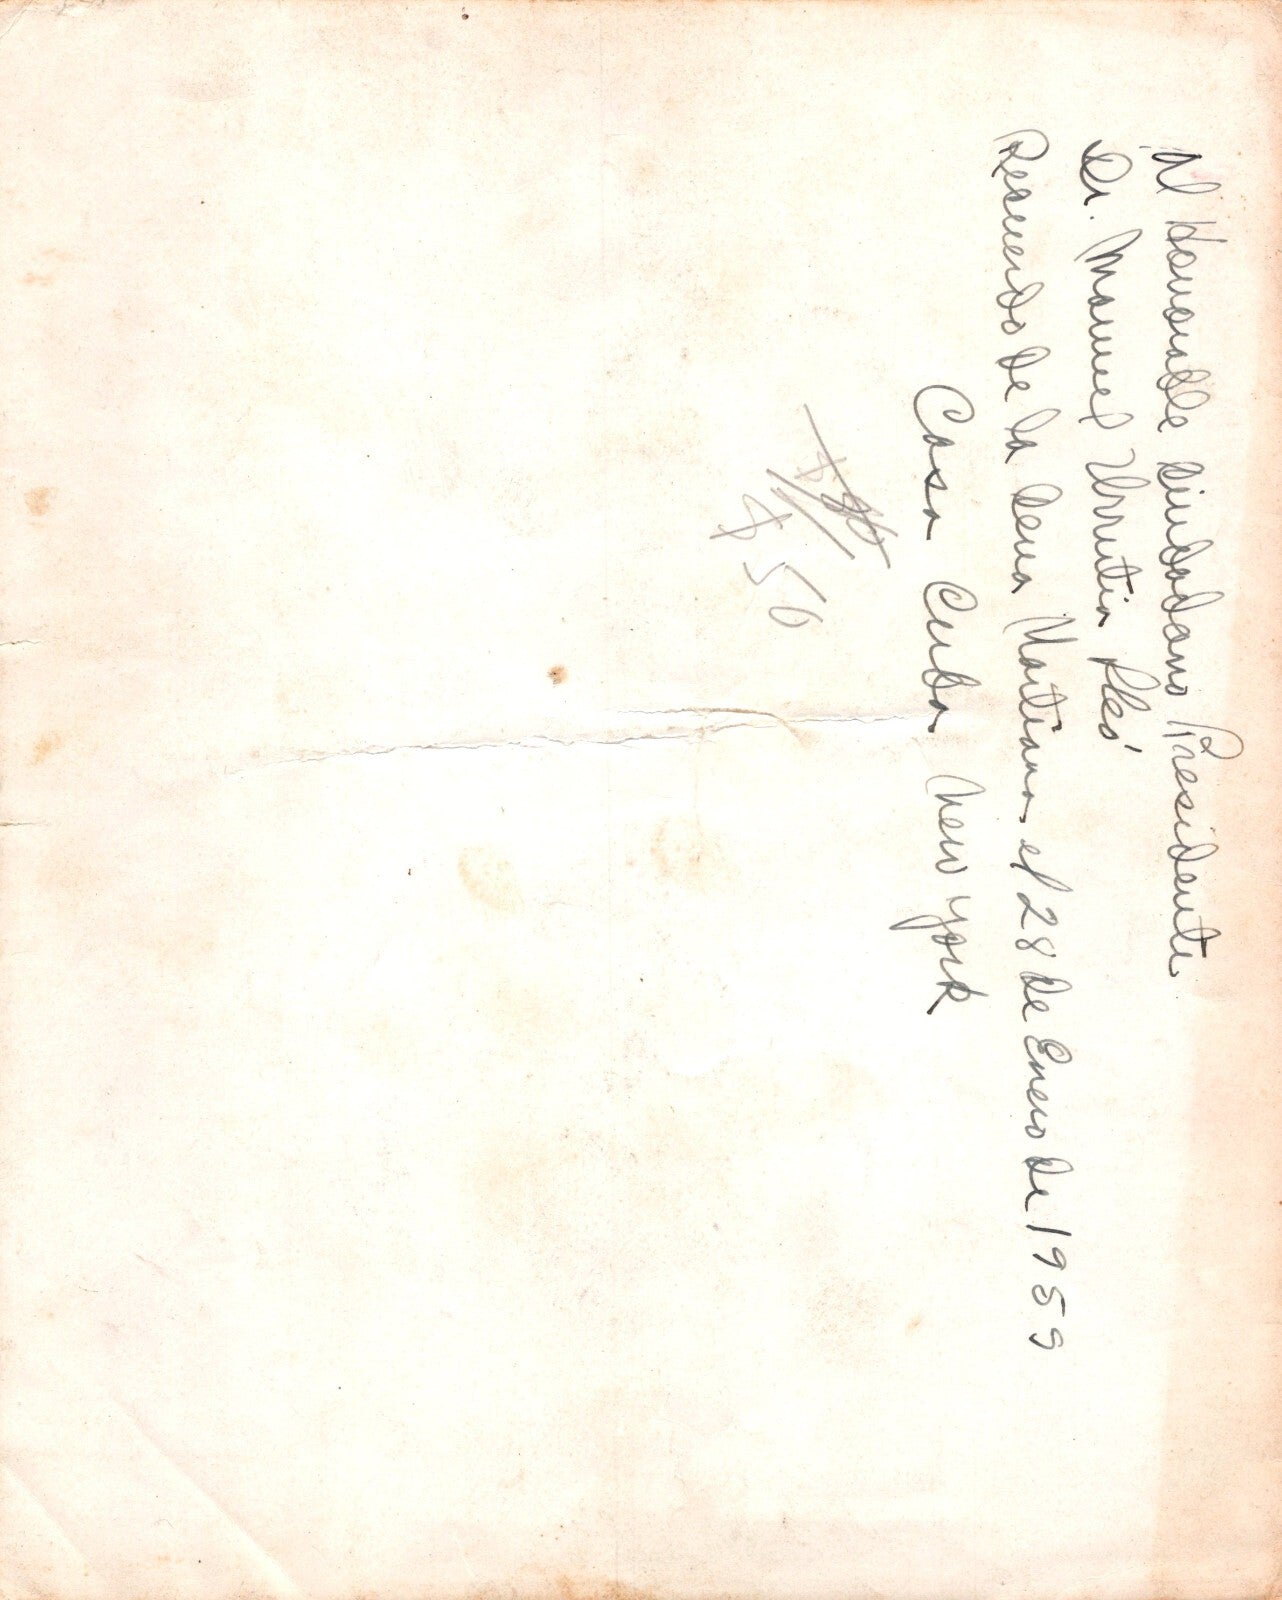 Al Honorable ciudadano Presidente
Dr. Manuel Urrutia Lleó
Recuerdo de la cena Martiana el 28 de Enero de 1959
Casa Cuba New York
x 56